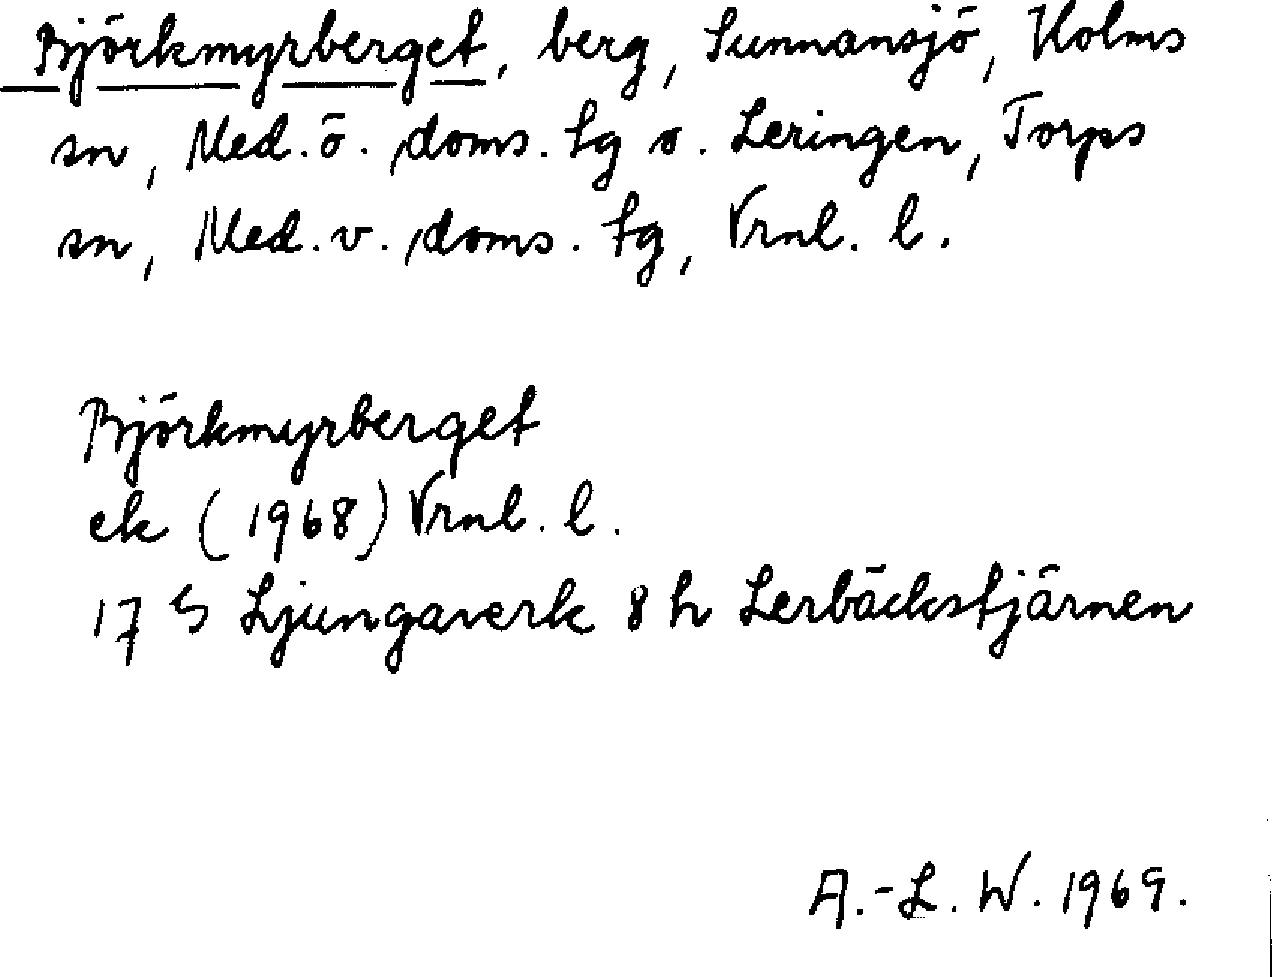 Björkmyrberget, berg, Sunnansjö, Holms
sn, Med. ö. doms. tg o. Leringen, Torps
sn, Med. v. doms. tg, Vrnl. l.
Björkmyrberget
ek (1968) Vrnl. l.
17 G Ljungaverk 8 h Lerbäckstjärnen
A.-L. W. 1969.